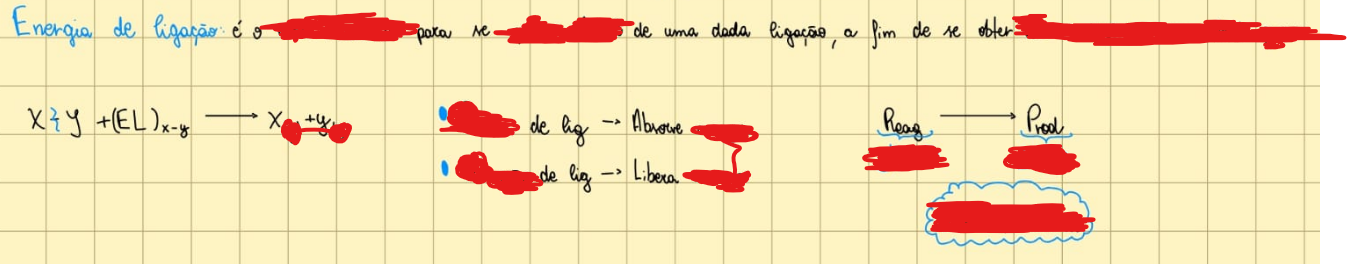 Energia de ligação: é o para se de uma dada ligação, a fim de se obter
X Y +(EL)x-y → X +y de lig → Absorve Reag → Prod
de lig → Libera